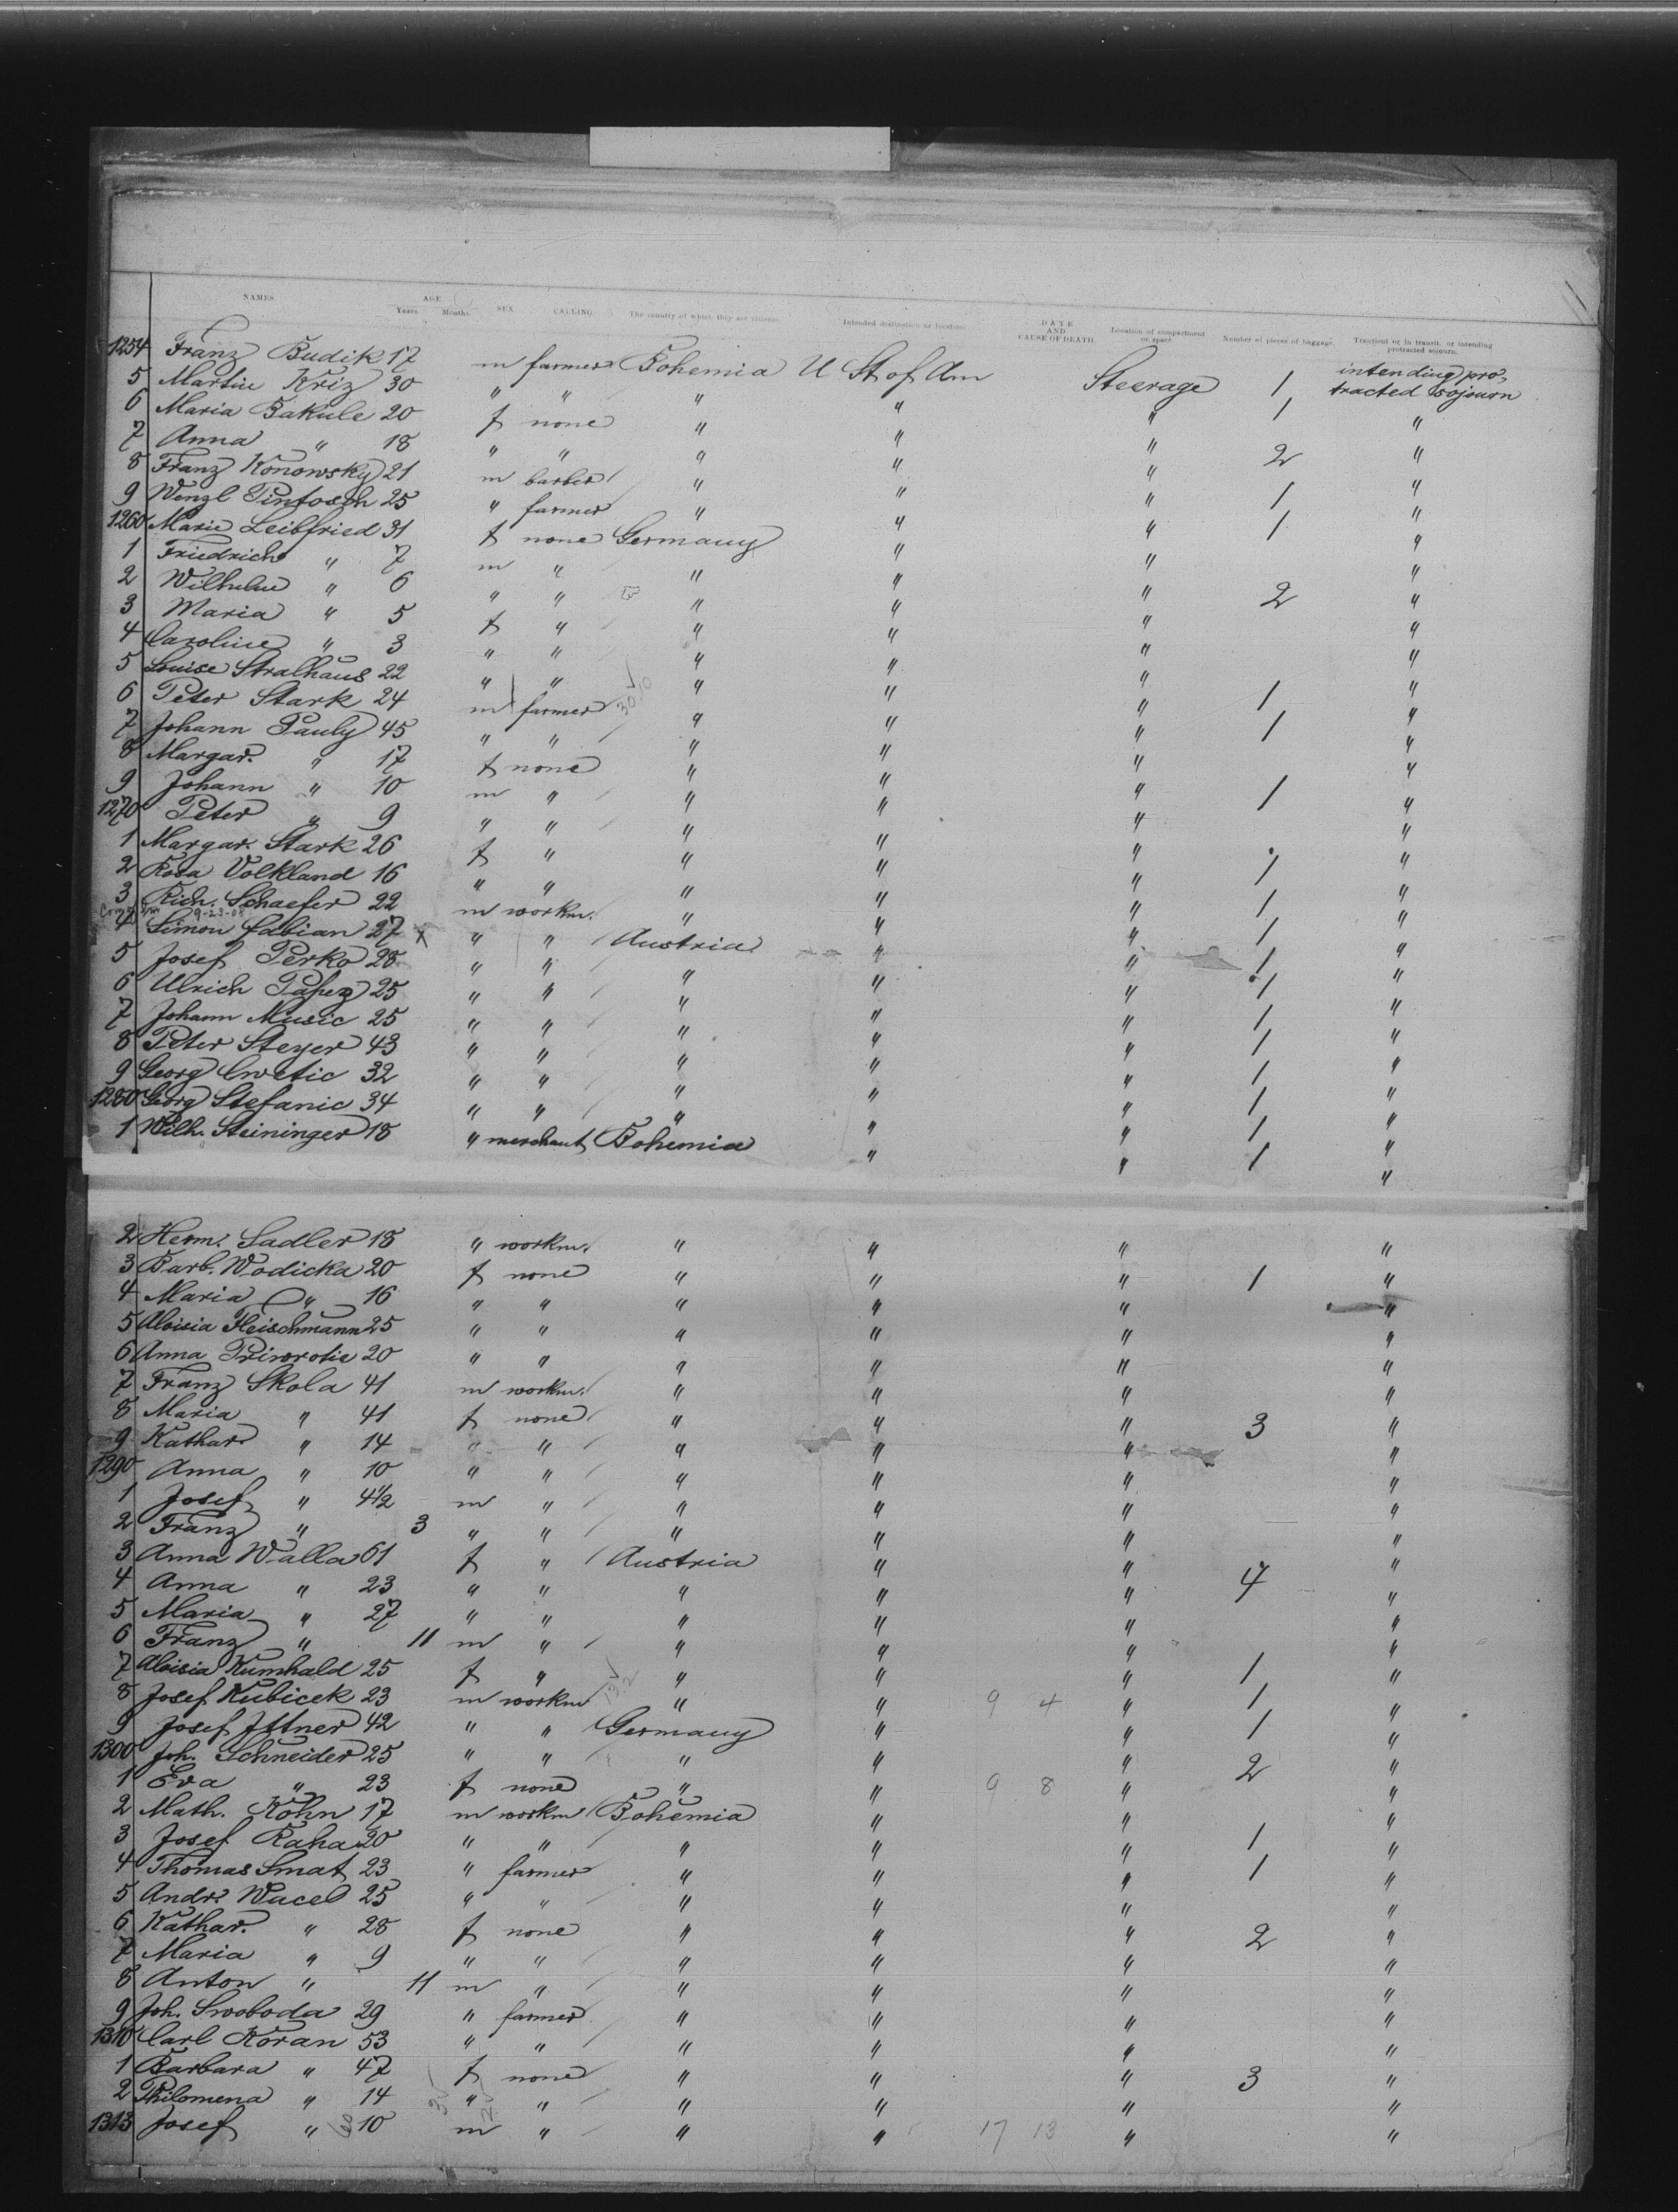 NAMES. AGE. Years. Months. SEX. CALLING. The country of which they are citizens. Intended destination or location. DATE AND CAUSE OF DEATH. Location of compartment or space. Number of pieces of baggage. Transient or in transit, or intending protracted sojourn.
1254 Franz Budik 17 m farmer Bohemia U St of Am Steerage 1 intending pro-tracted sojourn
5 Martin Kriz 30 " " " " " 1 "
6 Maria Bakule 20 f none " " " 2 "
7 Anna " 18 " " " " " "
8 Franz Konowsky 21 m barber " " " 1 "
9 Wenzl Pintosch 25 " farmer " " " 1 "
1260 Marie Leibfried 31 f none Germany " " "
1 Friedrich " 7 m " " " " 2 "
2 Wilhelm " 6 " " " " " "
3 Maria " 5 f " " " " "
4 Caroline " 3 " " " " " "
5 Louise Stralhaus 22 " " " " " 1 "
6 Peter Stark 24 m farmer " " " 1 "
7 Johann Pauly 45 " " " " " "
8 Margar. " 17 f none " " " 1 "
9 Johann " 10 m " " " " "
1270 Peter " 9 " " " " " "
1 Margar. Stark 26 f " " " " 1 "
2 Rosa Volkland 16 " " " " " 1 "
3 Rich. Schaefer 22 m workm. " " " 1 "
9-23-08
4 Simon Fabian 27 x " " Austria " " 1 "
5 Josef Perko 28 " " " " " 1 "
6 Ulrich Papez 25 " " " " " 1 "
7 Johann Music 25 " " " " " 1 "
8 Peter Steyer 43 " " " " " 1 "
9 Georg Cwetic 32 " " " " " 1 "
1280 Georg Stefanic 34 " " " " " 1 "
1 Wilh. Steininger 18 " merchant Bohemia " " 1 "
2 Herm. Sadler 18 " workm. " " " "
3 Barb. Wodicka 20 f none " " " 1 "
4 Maria " 16 " " " " " "
5 Aloisia Fleischmann 25 " " " " " "
6 Anna Priworotic 20 " " " " " "
7 Franz Skola 41 m workm. " " " "
8 Maria " 41 f none " " " 3 "
9 Kathar. " 14 " " " " " "
1290 Anna " 10 " " " " " "
1 Josef " 4 1/2 m " " " " "
2 Franz " 3 " " " " " "
3 Anna Walla 61 f " Austria " " "
4 Anna " 23 " " " " " 4 "
5 Maria " 27 " " " " " "
6 Franz " 11 m " " " " "
7 Aloisia Kumhald 25 f " " " " 1 "
8 Josef Kubicek 23 m workm " " 9 4 " 1 "
9 Josef Ittner 42 " " Germany " " 1 "
1300 Joh. Schneider 25 " " " " " 2 "
1 Eva " 23 f none " " 9 8 " "
2 Math. Köhn 17 m workm Bohemia " " "
3 Josef Raha 20 " " " " " 1 "
4 Thomas Smat 23 " farmer " " " 1 "
5 Andr. Wacel 25 " " " " " "
6 Kathar. " 28 f none " " " 2 "
7 Maria " 9 " " " " " "
8 Anton " 11 m " " " " "
9 Joh. Swoboda 29 " farmer " " " "
1310 Carl Koran 53 " " " " " "
1 Barbara " 47 f none " " " 3 "
2 Philomena " 14 " " " " " "
1313 Josef " 10 m " " " 17 13 " "